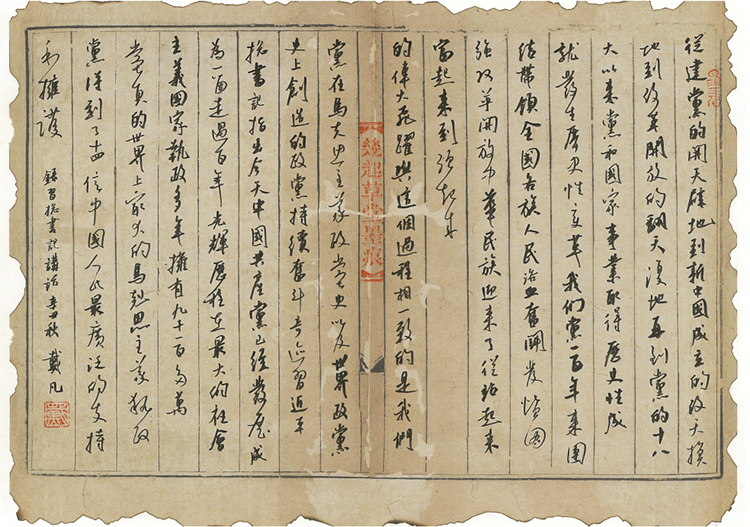 從建黨的開天辟地到新中國成立的改天換
地到改革開放的翻天覆地再到黨的十八
大以來黨和國家事業取得歷史性成
就發生歷史性變革我们黨一百年來團
結帶領全國各族人民浴血奮鬥發憤圖
強改革開放中華民族迎來了從站起來
富起來到强起來
的偉大飛躍與這個過程相一致的是我們
草堂墨痕
黨在馬克思主義政黨史以及世界政黨
史上創造的政黨持續奮斗奇迹習近平
總書記指出今天中國共産黨已經發展成
為一個走過百年光輝歷程在最大的社會
主義國家執政多年擁有九千一百多萬
黨員的世界上最大的馬克思主義執政
黨得到了十四億中國人民最廣泛的支持
和擁護
錄習總書記講話辛丑秋 戴凡